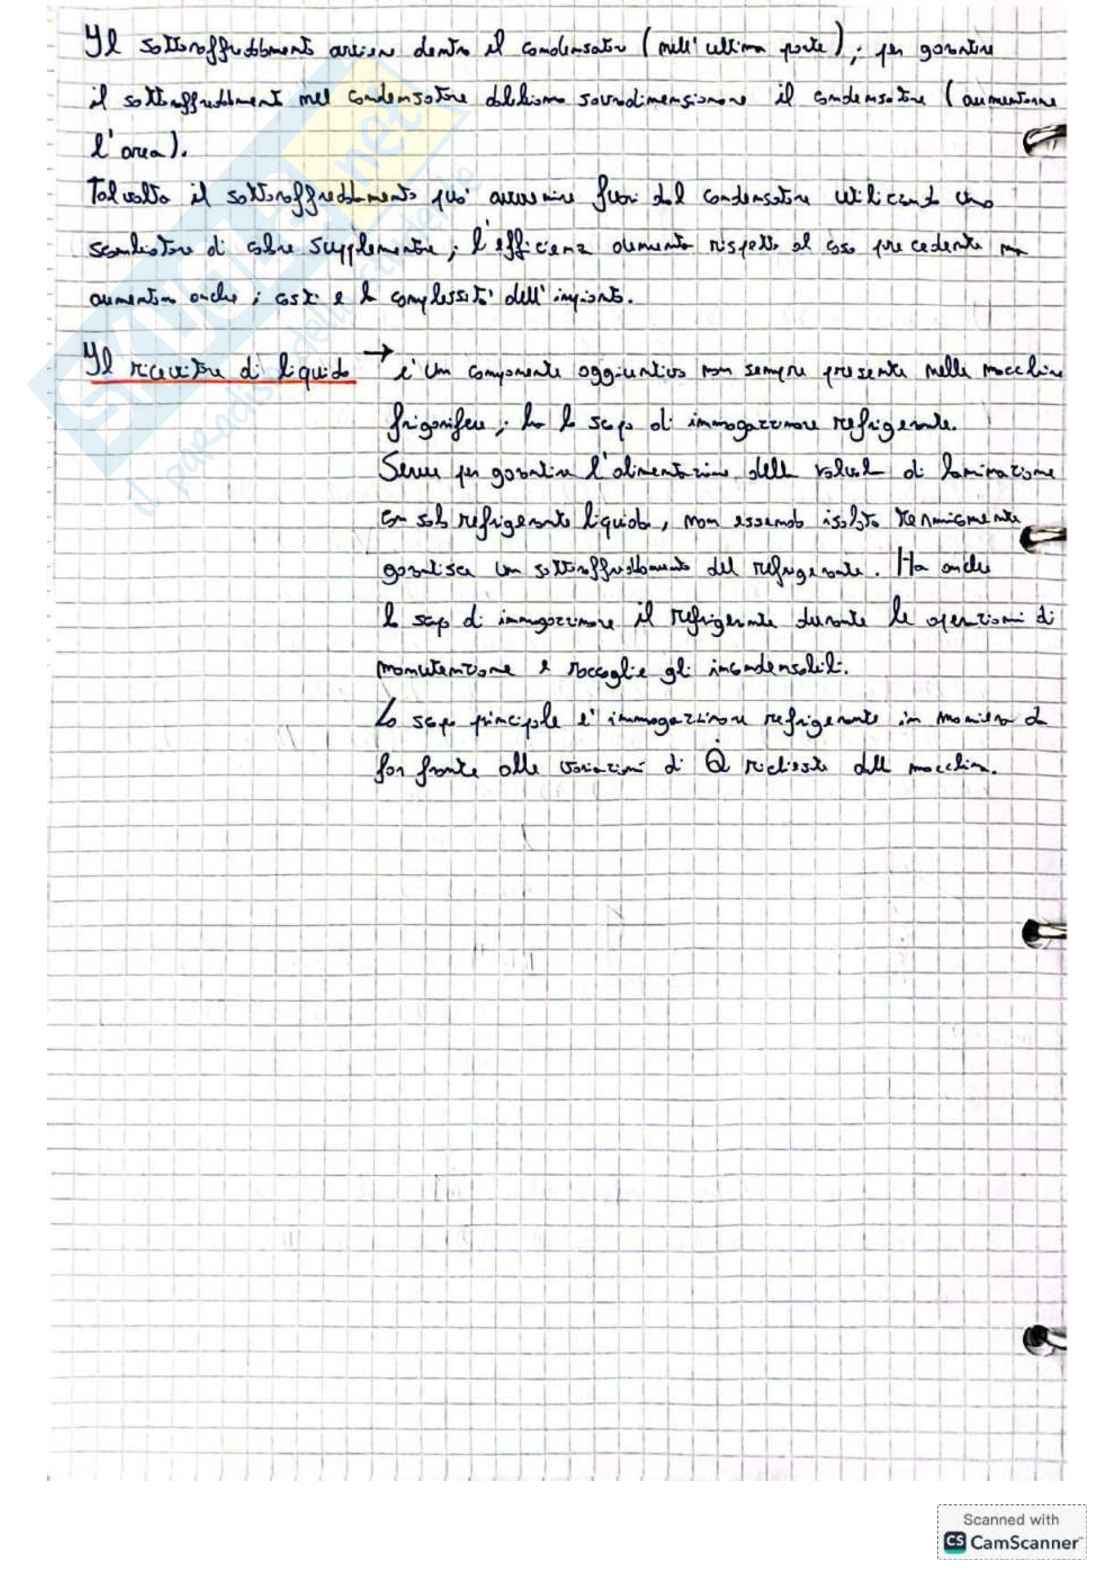 Il sottoraffreddamento avviene dentro il condensatore (nell'ultima parte), per garantire
il sottoraffreddamento nel condensatore dobbiamo sovradimensionare il condensatore (aumentarne
l'area).
Talvolta il sottoraffreddamento può avvenire fuori dal condensatore utilizzando uno
scambiatore di calore supplementare; l'efficienza aumenta rispetto al caso precedente ma
aumentano anche i costi e la complessità dell'impianto.
Il ricevitore di liquido → è un componente aggiuntivo non sempre presente nelle macchine
frigorifere, ha lo scopo di immagazzinare refrigerante.
Serve per garantire l'alimentazione della valvola di laminazione
con solo refrigerante liquido, non essendo isolato termicamente
garantisce un sottoraffreddamento del refrigerante. Ha anche
lo scopo di immagazzinare il refrigerante durante le operazioni di
manutenzione e raccoglie gli incondensabili.
Lo scopo principale è immagazzinare refrigerante in maniera da
far fronte alle variazioni di Q̇ richieste dalla macchina.
SKUOLA.net
il paradiso dello studente
Scanned with
CS CamScanner